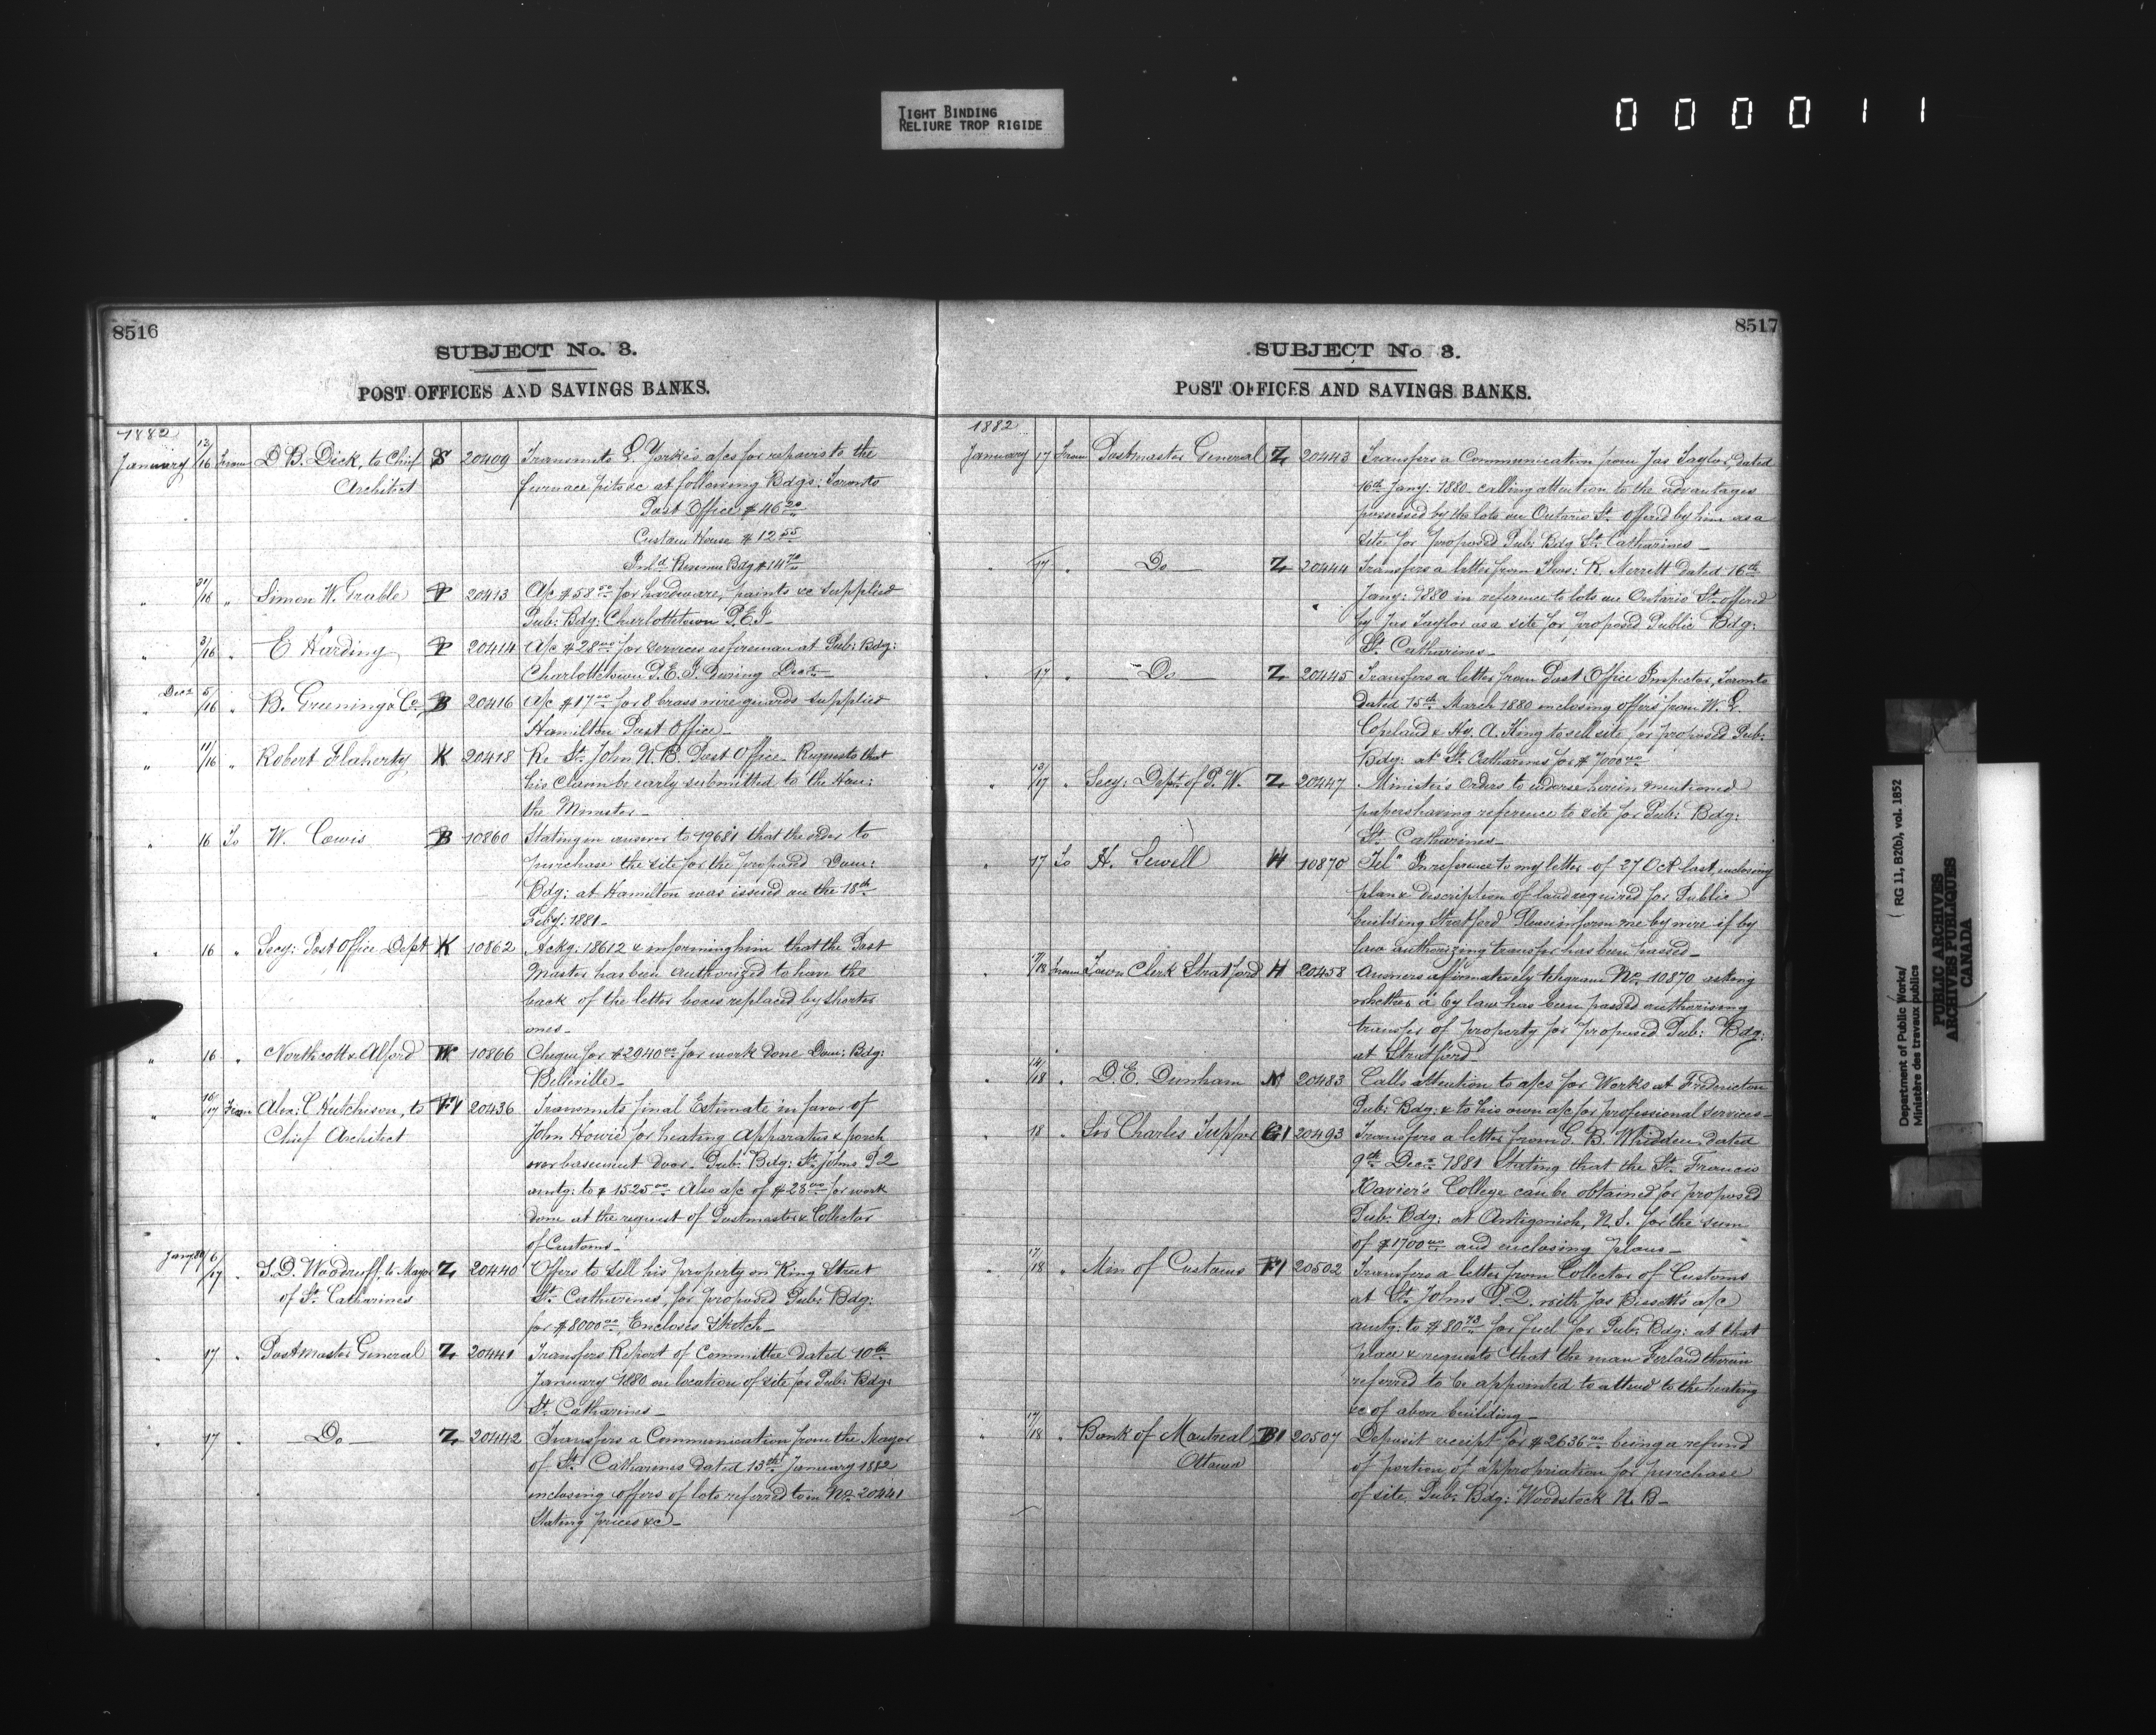 TIGHT BINDING
RELIURE TROP RIGIDE
000011
8516
SUBJECT No. 3.
POST OFFICES AND SAVINGS BANKS.
1882
January 12/16 From D. B. Dick, to Chief S 20409 Transmits L. Yorke's a/cs for repairs to the
Architect furnace pits &c at following Bdgs: Toronto
Post Office $46.20
Custom House $12.55
Inld Revenue Bdg $14.70
" 31/16 " Simon W. Crabbe P 20413 A/c $58.00 for hardware, paints &c supplied
Pub: Bdg: Charlottetown P.E.I_
" 3/16 " E Harding P 20414 A/c $28.00 for services as fireman at Pub: Bdg:
Charlottetown P.E.I. during Decr_
" Decr 5/16 " B. Greening & Co B 20416 A/c $17.00 for 8 brass wire guards supplied
Hamilton Post Office_
" 11/16 " Robert Flaherty K 20418 Re St. John N.B. Post Office. Requests that
his claim be early submitted to the Hon:
the Minister_
" 16 To W. Cowis B 10860 Stating in answer to 19681 that the order to
purchase the site for the proposed Dom:
Bdg: at Hamilton was issued on the 18th
Feby: 1881_
" 16 " Secy: Post Office Dept K 10862 Ackg. 18612 & informing him that the Post
Master has been authorized to have the
back of the letter boxes replaced by shorter
ones_
" 16 " Northcott & Alford W 10866 Cheque for $2940.00 for work done Dom: Bdg:
Belleville_
" 16/17 From Alex: C Hutchison, to F1 20436 Transmits final Estimate in favor of
Chief Architect John Howie for heating apparatus & porch
over basement door. Pub: Bdg: St. Johns P2
amtg: to $1525.00 Also a/c of $28.00 for work
done at the request of Postmaster & Collector
of Customs_
Jany 80 6/17 " S. D. Woodruff, to Mayor Z 20440 Offers to sell his property on King Street
of St. Catharines St. Catharines, for proposed Pub: Bdg:
for $8000.00 Encloses Sketch_
" 17 " Postmaster General Z 20441 Transfers Report of Committee dated 10th
January 1880 on location of site for Pub: Bdg:
St. Catharines_
" 17 " Do Z 20442 Transfers a Communication from the Mayor
of St. Catharines dated 13th January 1882
enclosing offers of lots referred to in No 20441
Stating prices &c_
8517
SUBJECT No 3.
POST OFFICES AND SAVINGS BANKS.
1882
January 17 From Postmaster General Z 20443 Transfers a Communication from Jas Taylor, dated
16th Jany: 1880 calling attention to the advantages
possessed by the lots on Ontario St. offered by him as a
site for proposed Pub: Bdg St. Catharines_
" 17 " Do Z 20444 Transfers a letter from Thos: R. Merritt dated 16th
Jany: 1880 in reference to lots on Ontario St. offered
by Jas Taylor as a site for proposed Public Bdg:
St. Catharines_
" 17 " Do Z 20445 Transfers a letter from Post Office Inspector, Toronto
dated 15th March 1880 enclosing offers from W. L.
Copeland & Hy. A. King to sell site for proposed Pub:
Bdg: at St. Catharines for $7000.00
" 13/17 " Secy: Dept. of P. W. Z 20447 Minister's Orders to endorse herein mentioned
papers having reference to site for Pub: Bdg:
St. Catharines_
" 17 To H. Sewell H 10870 Tel" In reference to my letter of 27 Oct last, enclosing
plan & description of land required for Public
building Stratford Please inform me by wire if by
law authorizing transfer has been passed_
" 17/18 From Town Clerk Stratford H 20458 Answers affirmatively telegram No. 10870 asking
whether a by law has been passed authorising
transfer of property for proposed Pub: Bdg:
at Stratford
" 14/18 " D. E. Dunham N 20483 Calls attention to a/cs for Works at Fredericton
Pub: Bdg: & to his own a/c for professional services_
" 18 " Sir Charles Tupper G1 20493 Transfers a letter from C. B. Whidden dated
9th Decr 1881 Stating that the St. Francis
Xavier's College can be obtained for proposed
Pub: Bdg: at Antigonish, N.S. for the sum
of $1700.00 and enclosing plans_
" 17/18 " Min of Customs F1 20502 Transfers a letter from Collector of Customs
at St. Johns P.Q. with Jas Bissett's a/c
amtg: to $80.73 for fuel for Pub: Bdg: at that
place & requests that the man Ferland therein
referred to be appointed to attend to the heating
&c of above building_
" 17/18 " Bank of Montreal B1 20507 Deposit receipt for $2636.00 being a refund
Ottawa of portion of appropriation for purchase
of site Pub: Bdg: Woodstock N. B_
Department of Public Works/
Ministère des travaux publics
( RG 11, B2(b), vol. 1852
PUBLIC ARCHIVES
ARCHIVES PUBLIQUES
CANADA